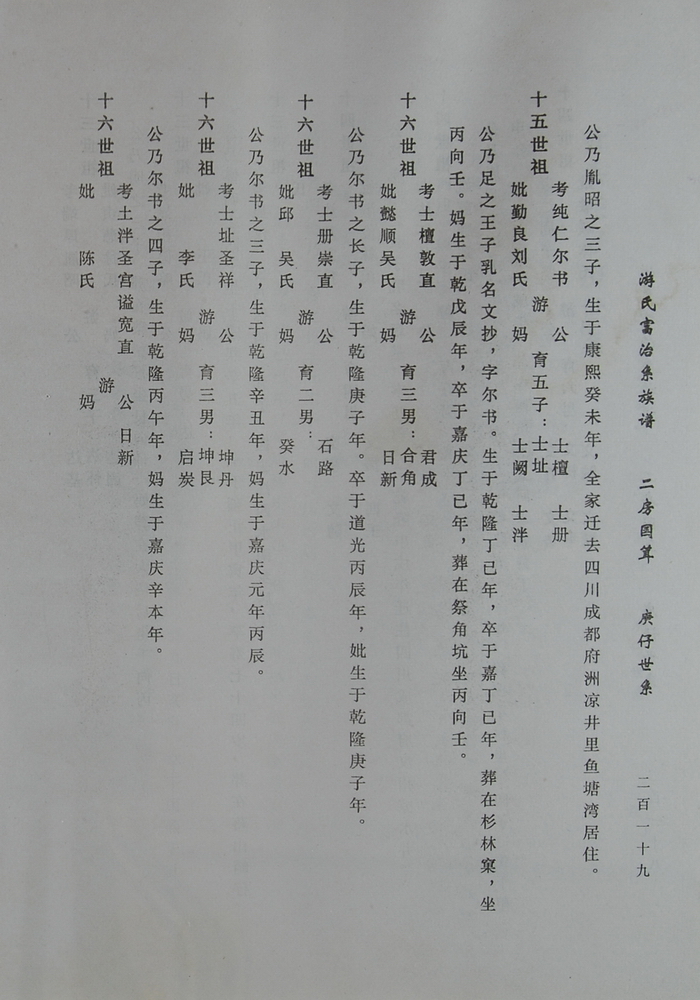 游氏富治系族谱 二房国算 庚仔世系 二百一十九
公乃胤昭之三子，生于康熙癸未年，全家迁去四川成都府洲凉井里鱼塘湾居住。
十五世祖
考纯仁尔书 公 士檀 士册
游 育五子：士址
妣勤良刘氏 妈 士阙 士泮
公乃足之王子乳名文抄，字尔书。生于乾隆丁已年，卒于嘉丁已年，葬在杉林窠，坐
丙向壬。妈生于乾戊辰年，卒于嘉庆丁已年，葬在祭角坑坐丙向壬。
十六世祖
考士檀敦直 公 君成
游 育三男：合角
妣懿顺吴氏 妈 日新
公乃尔书之长子，生于乾隆庚子年。卒于道光丙辰年，妣生于乾隆庚子年。
十六世祖
考士册崇直 公 石路
游 育二男：
妣邱 吴氏 妈 癸水
公乃尔书之三子，生于乾隆辛丑年，妈生于嘉庆元年丙辰。
十六世祖
考士址圣祥 公 坤丹
游 育三男：坤艮
妣 李氏 妈 启炭
公乃尔书之四子，生于乾隆丙午年，妈生于嘉庆辛本年。
十六世祖
考土泮圣宫谥宽直 公 日新
游
妣 陈氏 妈